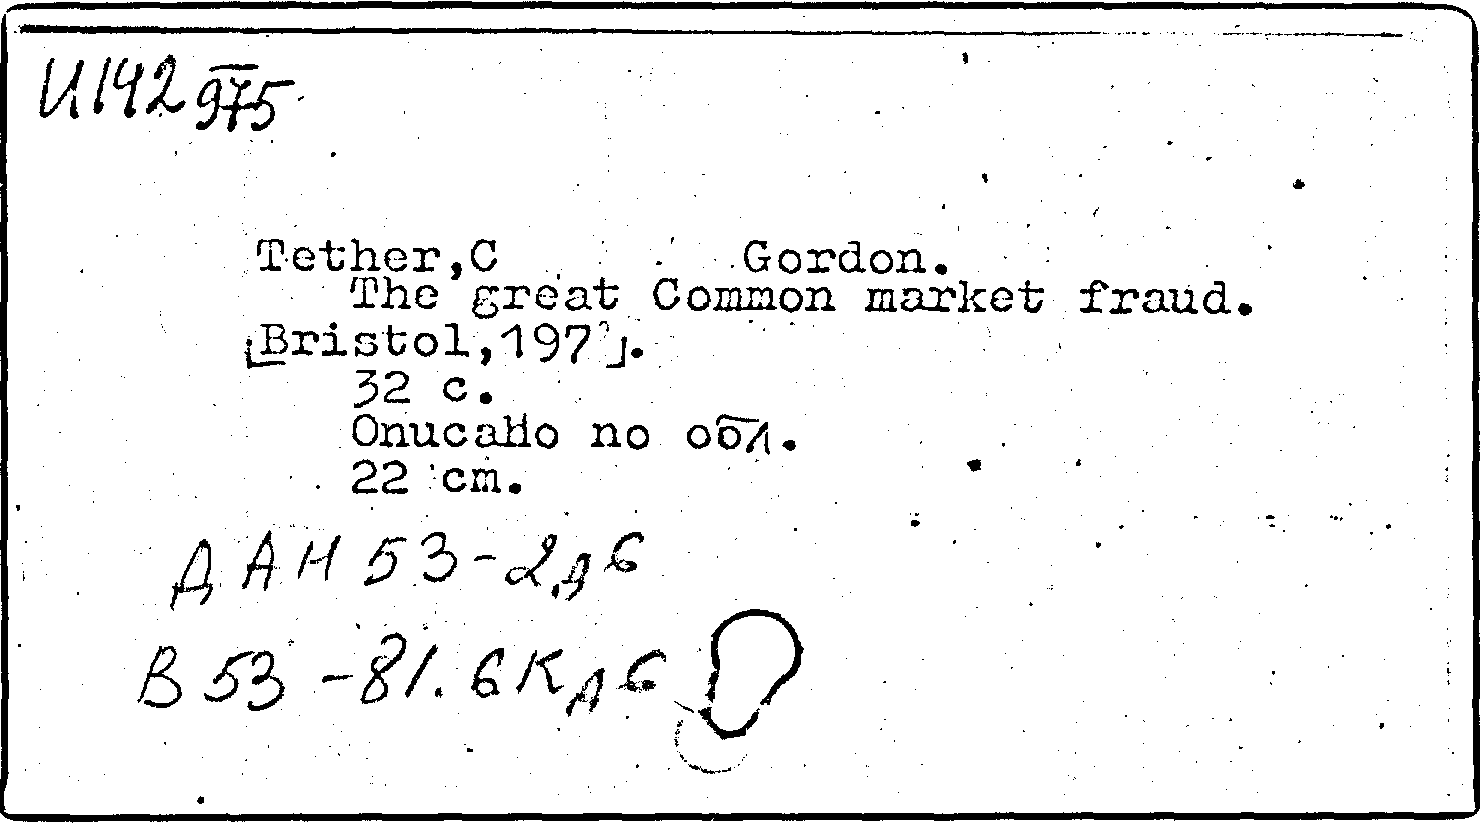 И142 975
Tether,C Gordon.
The great Common market fraud.
[Bristol,197?].
32 c.
Описано по обл.
22 cm.
ДАН 53-2д6
В 53-81.6Кд6